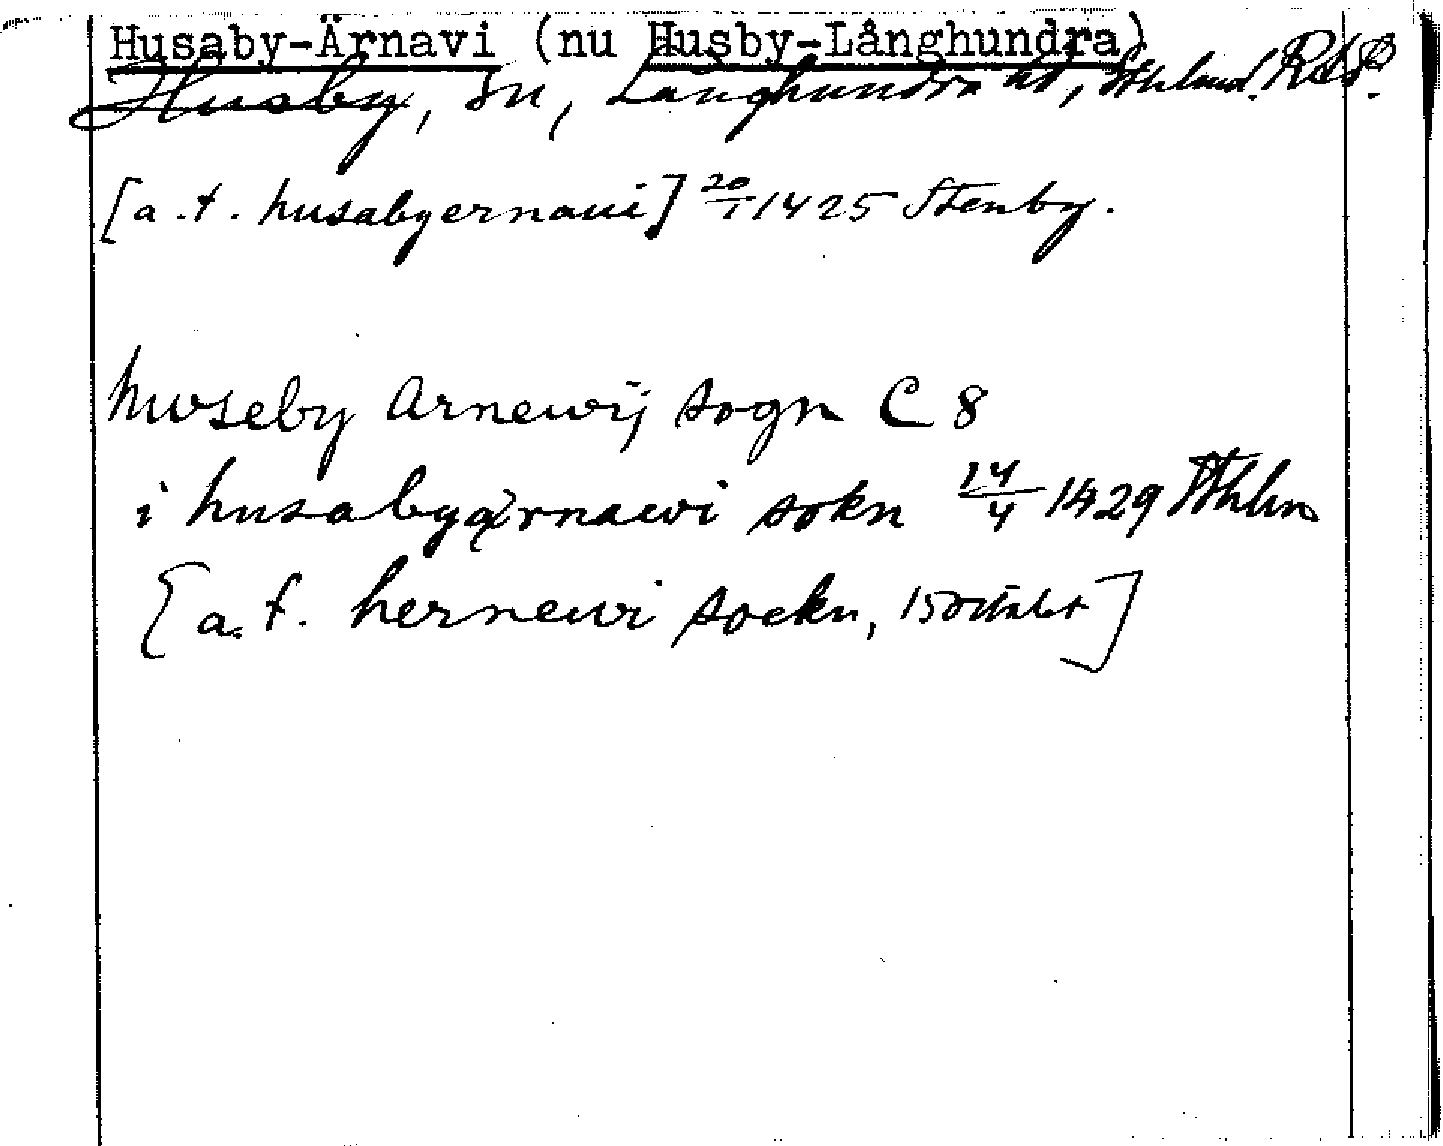 Husaby-Ärnavi (nu Husby-Långhundra)
Husby, sn, Långhundra hd, Sthlms l. RAP.
[a.t. husabyernaui] 20/1 1425 Stenby.
huseby Arnewij sogn C 8
i husabyærnawi sokn 14/4 1429 Sthlm
[a.t. hernewi sockn, 1500talet]